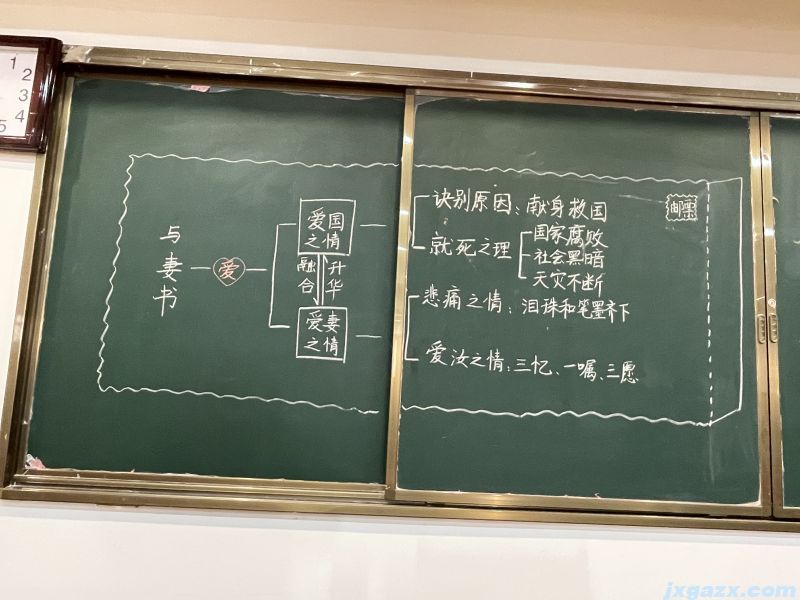 1
2
3
4
5
与妻书
爱
爱国
之情
融合
升华
爱妻
之情
诀别原因:献身救国
就死之理
国家腐败
社会黑暗
天灾不断
悲痛之情:泪珠和笔墨齐下
爱汝之情:三忆、一嘱、三愿
邮票
jxgazx.com